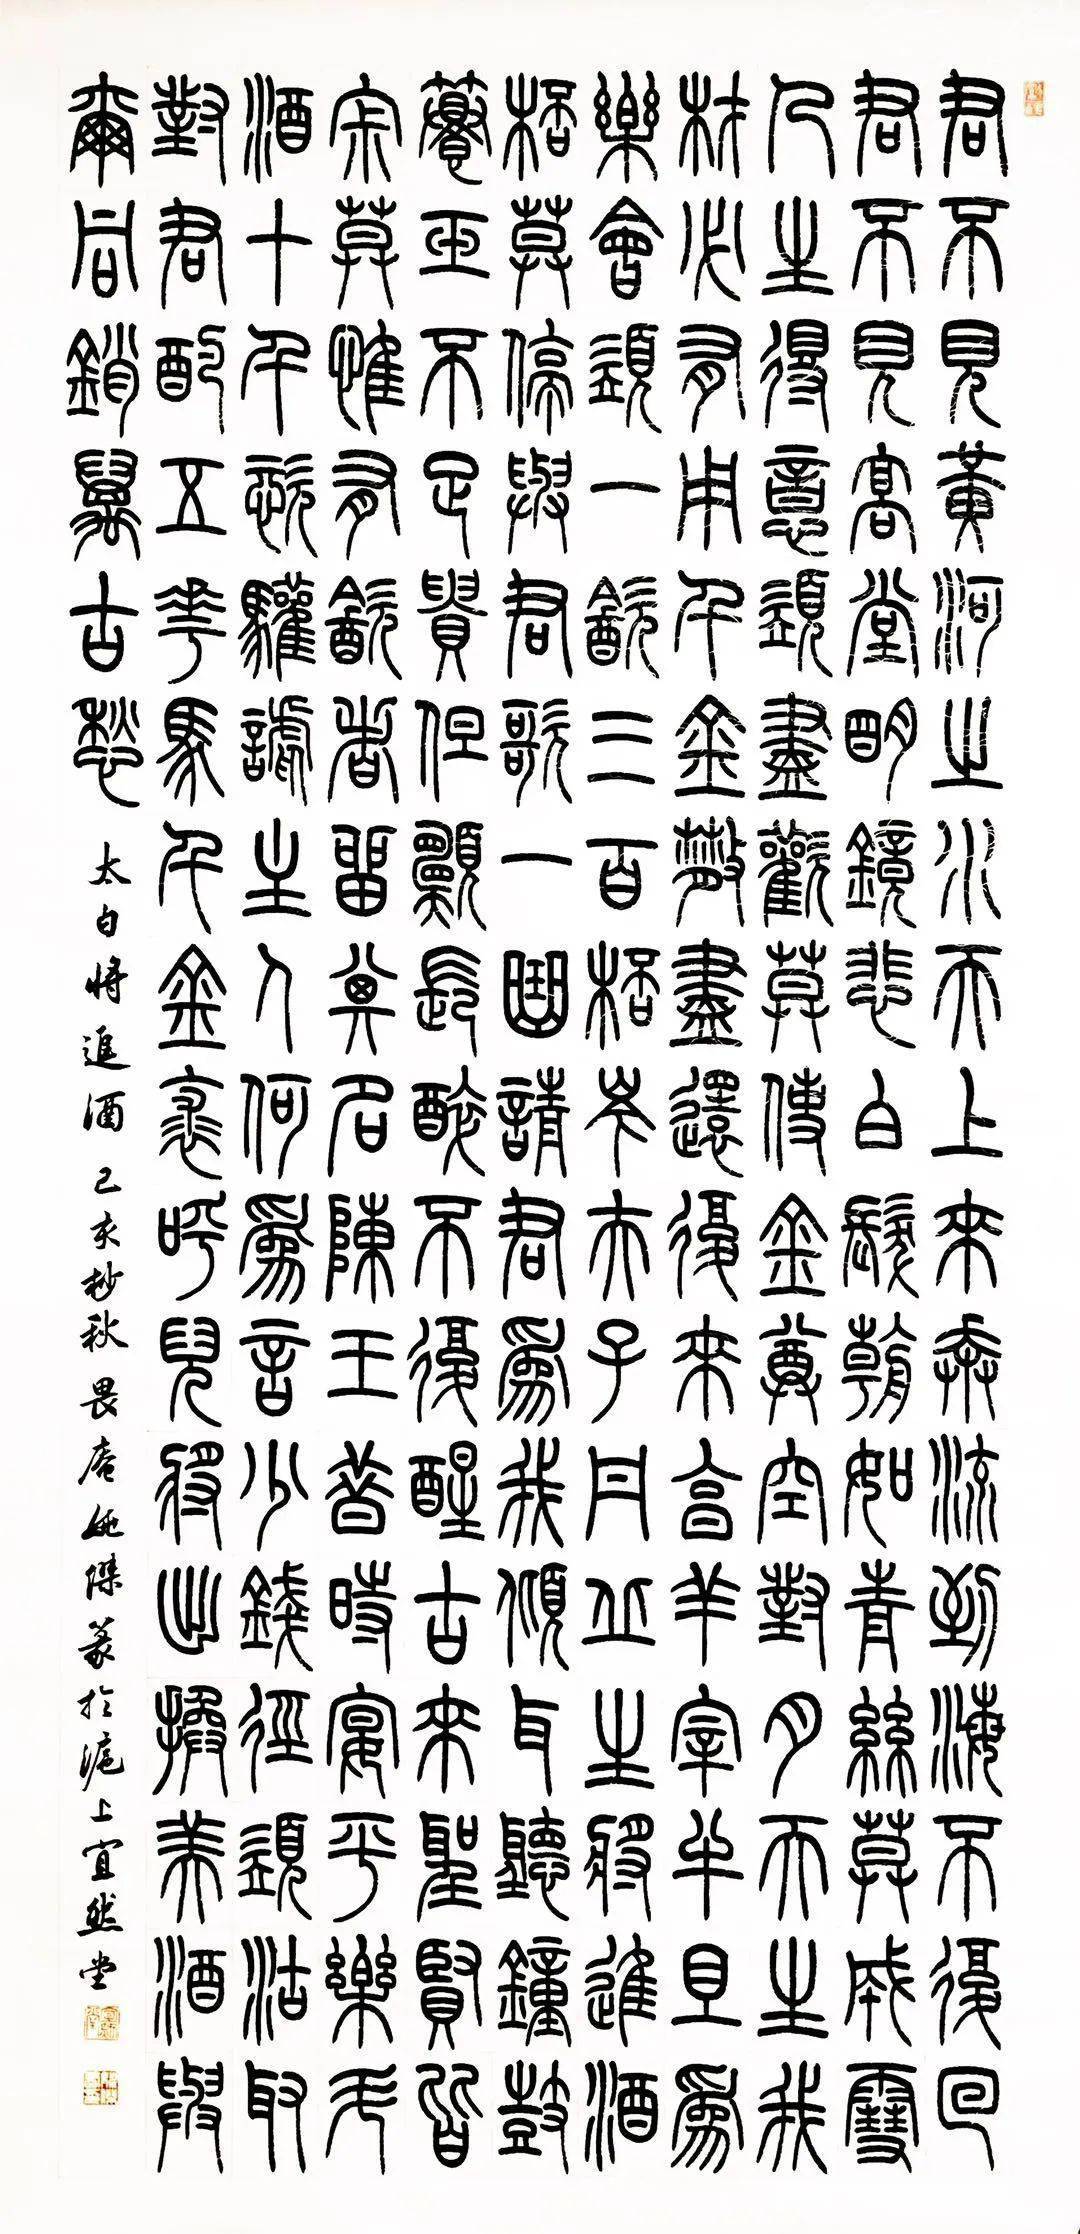 君不見黃河之水天上來奔流到海不復回
君不見高堂明鏡悲白髮朝如青絲莫成雪
人生得意須盡歡莫使金尊空對月天生我
材必有用千金散盡還復來亨羊宰牛且為
樂會須一飲三百杯岑夫子丹丘生將進酒
杯莫停與君歌一曲請君為我傾耳聽鐘鼓
饌玉不足貴但願長醉不復醒古來聖賢皆
寂莫惟有飲者留其名陳王昔時宴平樂斗
酒十千恣驩謔主人何為言少錢徑須沽取
對君酌五花馬千金裘呼兒將出換美酒與
爾同銷萬古愁 太白將進酒 己亥杪秋 畏庵姚傑篆於滬上宜然堂